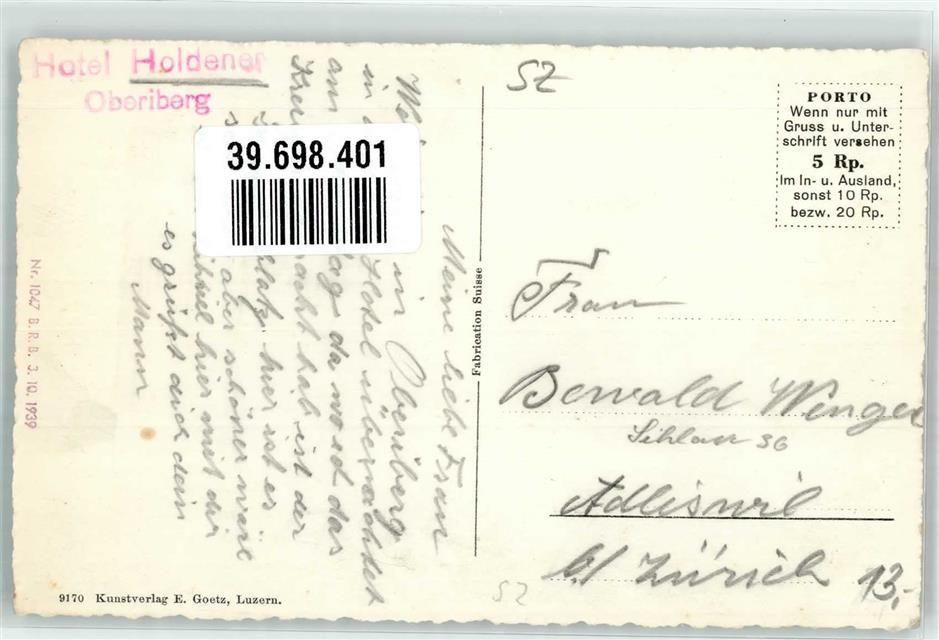 Hotel Holdener
Oberiberg
SZ
PORTO
Wenn nur mit
Gruss u. Unter-
schrift versehen
5 Rp.
Im In- u. Ausland,
sonst 10 Rp.
bezw. 20 Rp.
39.698.401
Meine liebe Frau
in Oberiberg
in Hotel übernachtet
am da wo ich das
hab ist der
hier ist es
aber schöner weil
hier mit dir
es grüsst dich dein
Mann
Nr. 1047 B.R.B. 3.10.1939
Fabrication Suisse
Frau
Berwald Wenger
Sihlau 36
Adliswil
b/ Zürich
13,-
SZ
9170 Kunstverlag E. Goetz, Luzern.